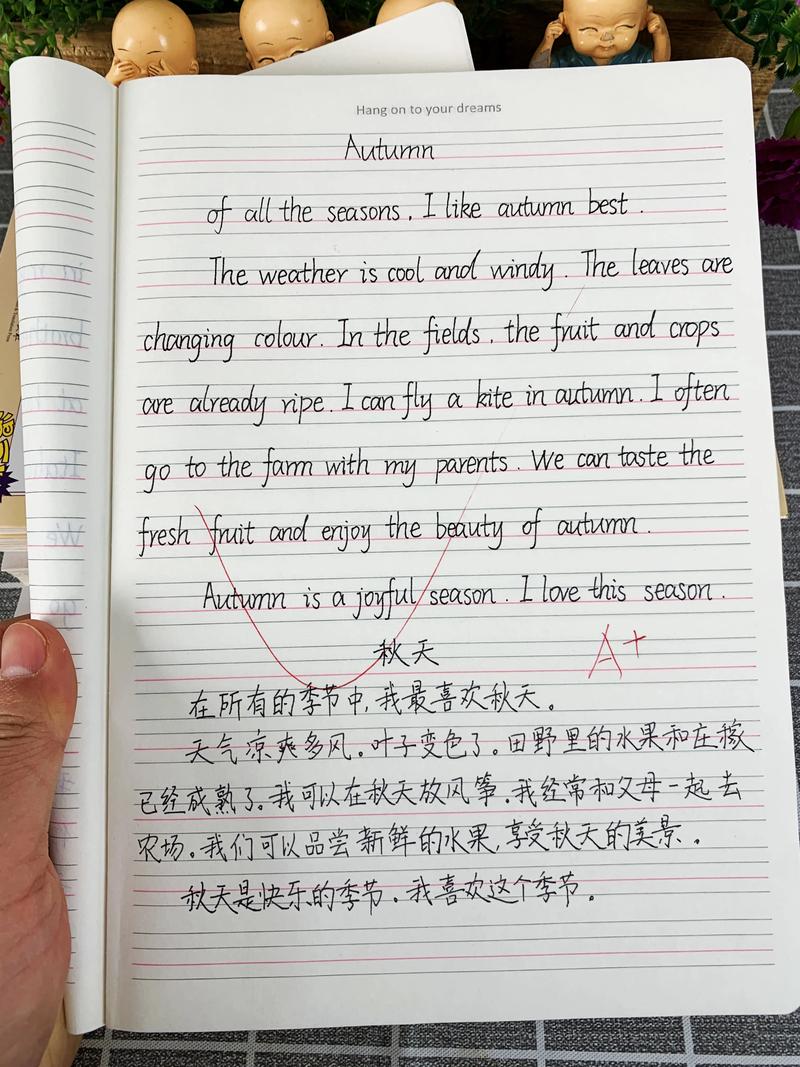 Hang on to your dreams
Autumn
of all the seasons, I like autumn best.
The weather is cool and windy. The leaves are
changing colour. In the fields, the fruit and crops
are already ripe. I can fly a kite in autumn. I often
go to the farm with my parents. We can taste the
fresh fruit and enjoy the beauty of autumn.
Autumn is a joyful season. I love this season.
A+
秋天
在所有的季节中,我最喜欢秋天。
天气凉爽多风。叶子变色了。田野里的水果和庄稼
已经成熟了。我可以在秋天放风筝。我经常和父母一起去
农场。我们可以品尝新鲜的水果,享受秋天的美景。
秋天是快乐的季节。我喜欢这个季节。